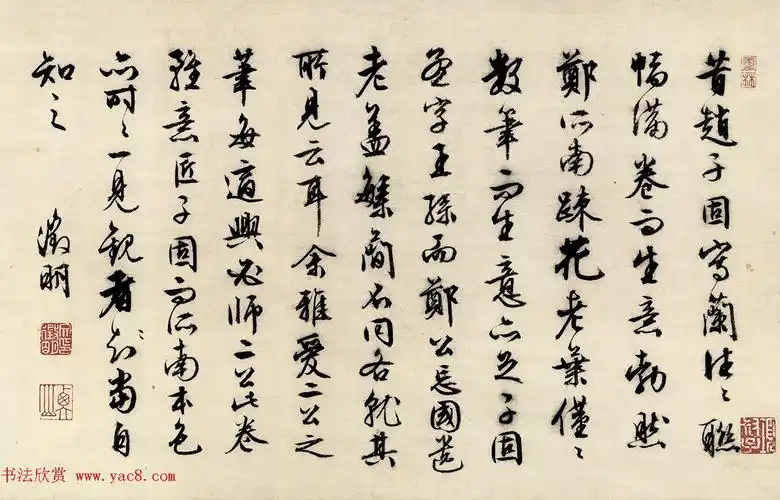 昔趙子固寫蘭往往聯
幅滿卷而生意勃然
鄭所南疎花老葉僅僅
數筆而生意亦足子固
孟字王孫而鄭公忘國遺
老蓋繁簡不同各就其
所見云耳余雅愛二公之
筆每適興必師二公此卷
雖意匠子固而所南本色
亦時時一見觀者當自
知之
徵明
书法欣赏 www.yac8.com